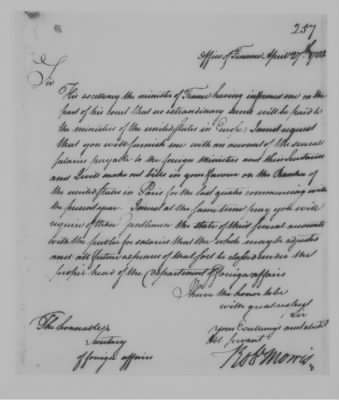 257
Office of Finance April 27th 1782
Sir
His excellency the minister of France having informed me on the
part of his court that no extraordinary monies will be paid to
the ministers of the united States in Europe; I must request
that you will furnish me with an account of the several
salaries payable to the foreign Ministers and their Secretaries
and I will make out bills in your favour on the Banker of
the united States in Paris for the last quarter commencing with
the present year. I must at the same time pray you will
require of these gentlemen the state of their several accounts
with the public for salaries that the whole may be adjusted
and all future expences of that sort be classed under the
proper head of the Department of foreign affairs
I have the honor to be
with great respect
Sir
your Excellency's and obedt
Hbl Servant
Robt Morris
The honorable
Secretary
of foreign affairs